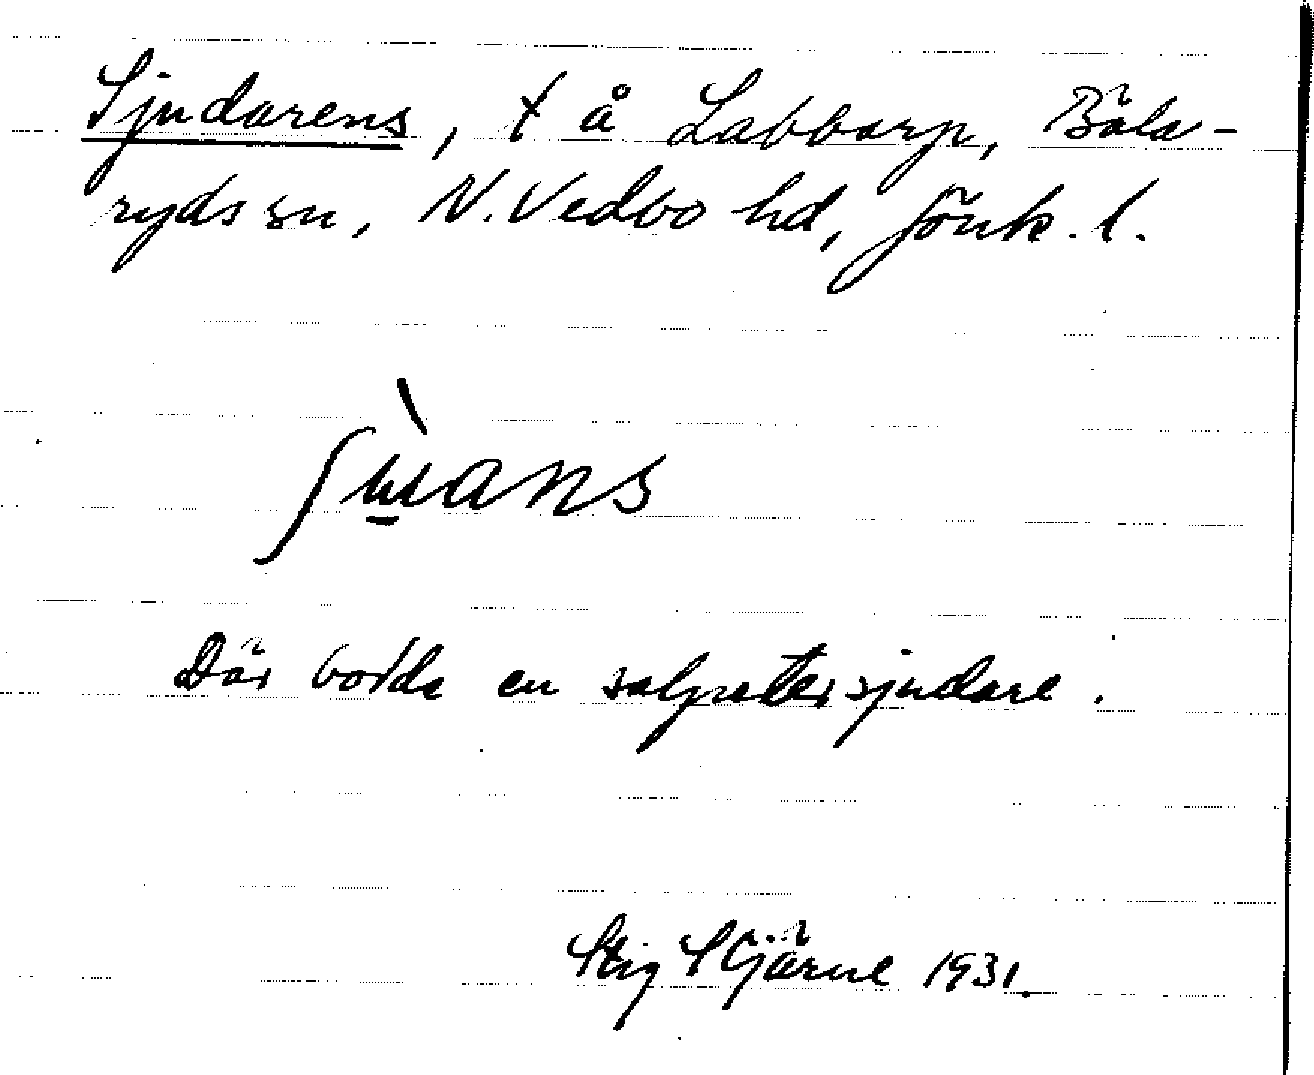 Sjudarens, t å Labbarp, Bäla-
ryds sn, N. Vedbo hd, Jönk. l.
Där bodde en salpetersjudare.
Stig Stjärne 1931.